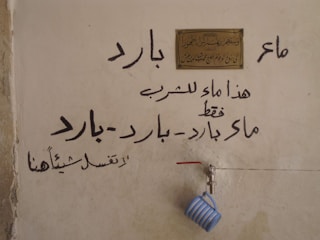 ماء بارد
هذا ماء للشرب
فقط
ماء بارد - بارد - بارد
لا تغسل شيئاً هنا